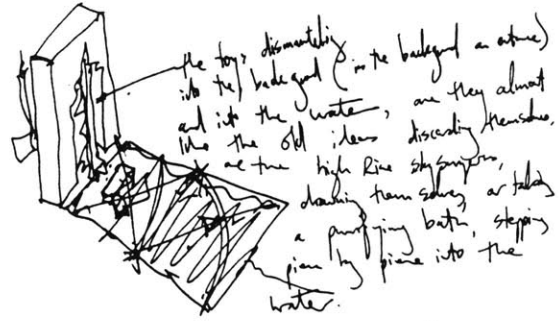 the toys dismantling
into the background (in the background an outline)
and into the water, are they almost
like the old ideas discarding themselves,
are the high Rise skyscrapers,
drowning themselves, or taking
a purifying bath, stepping
piece by piece into the
water.